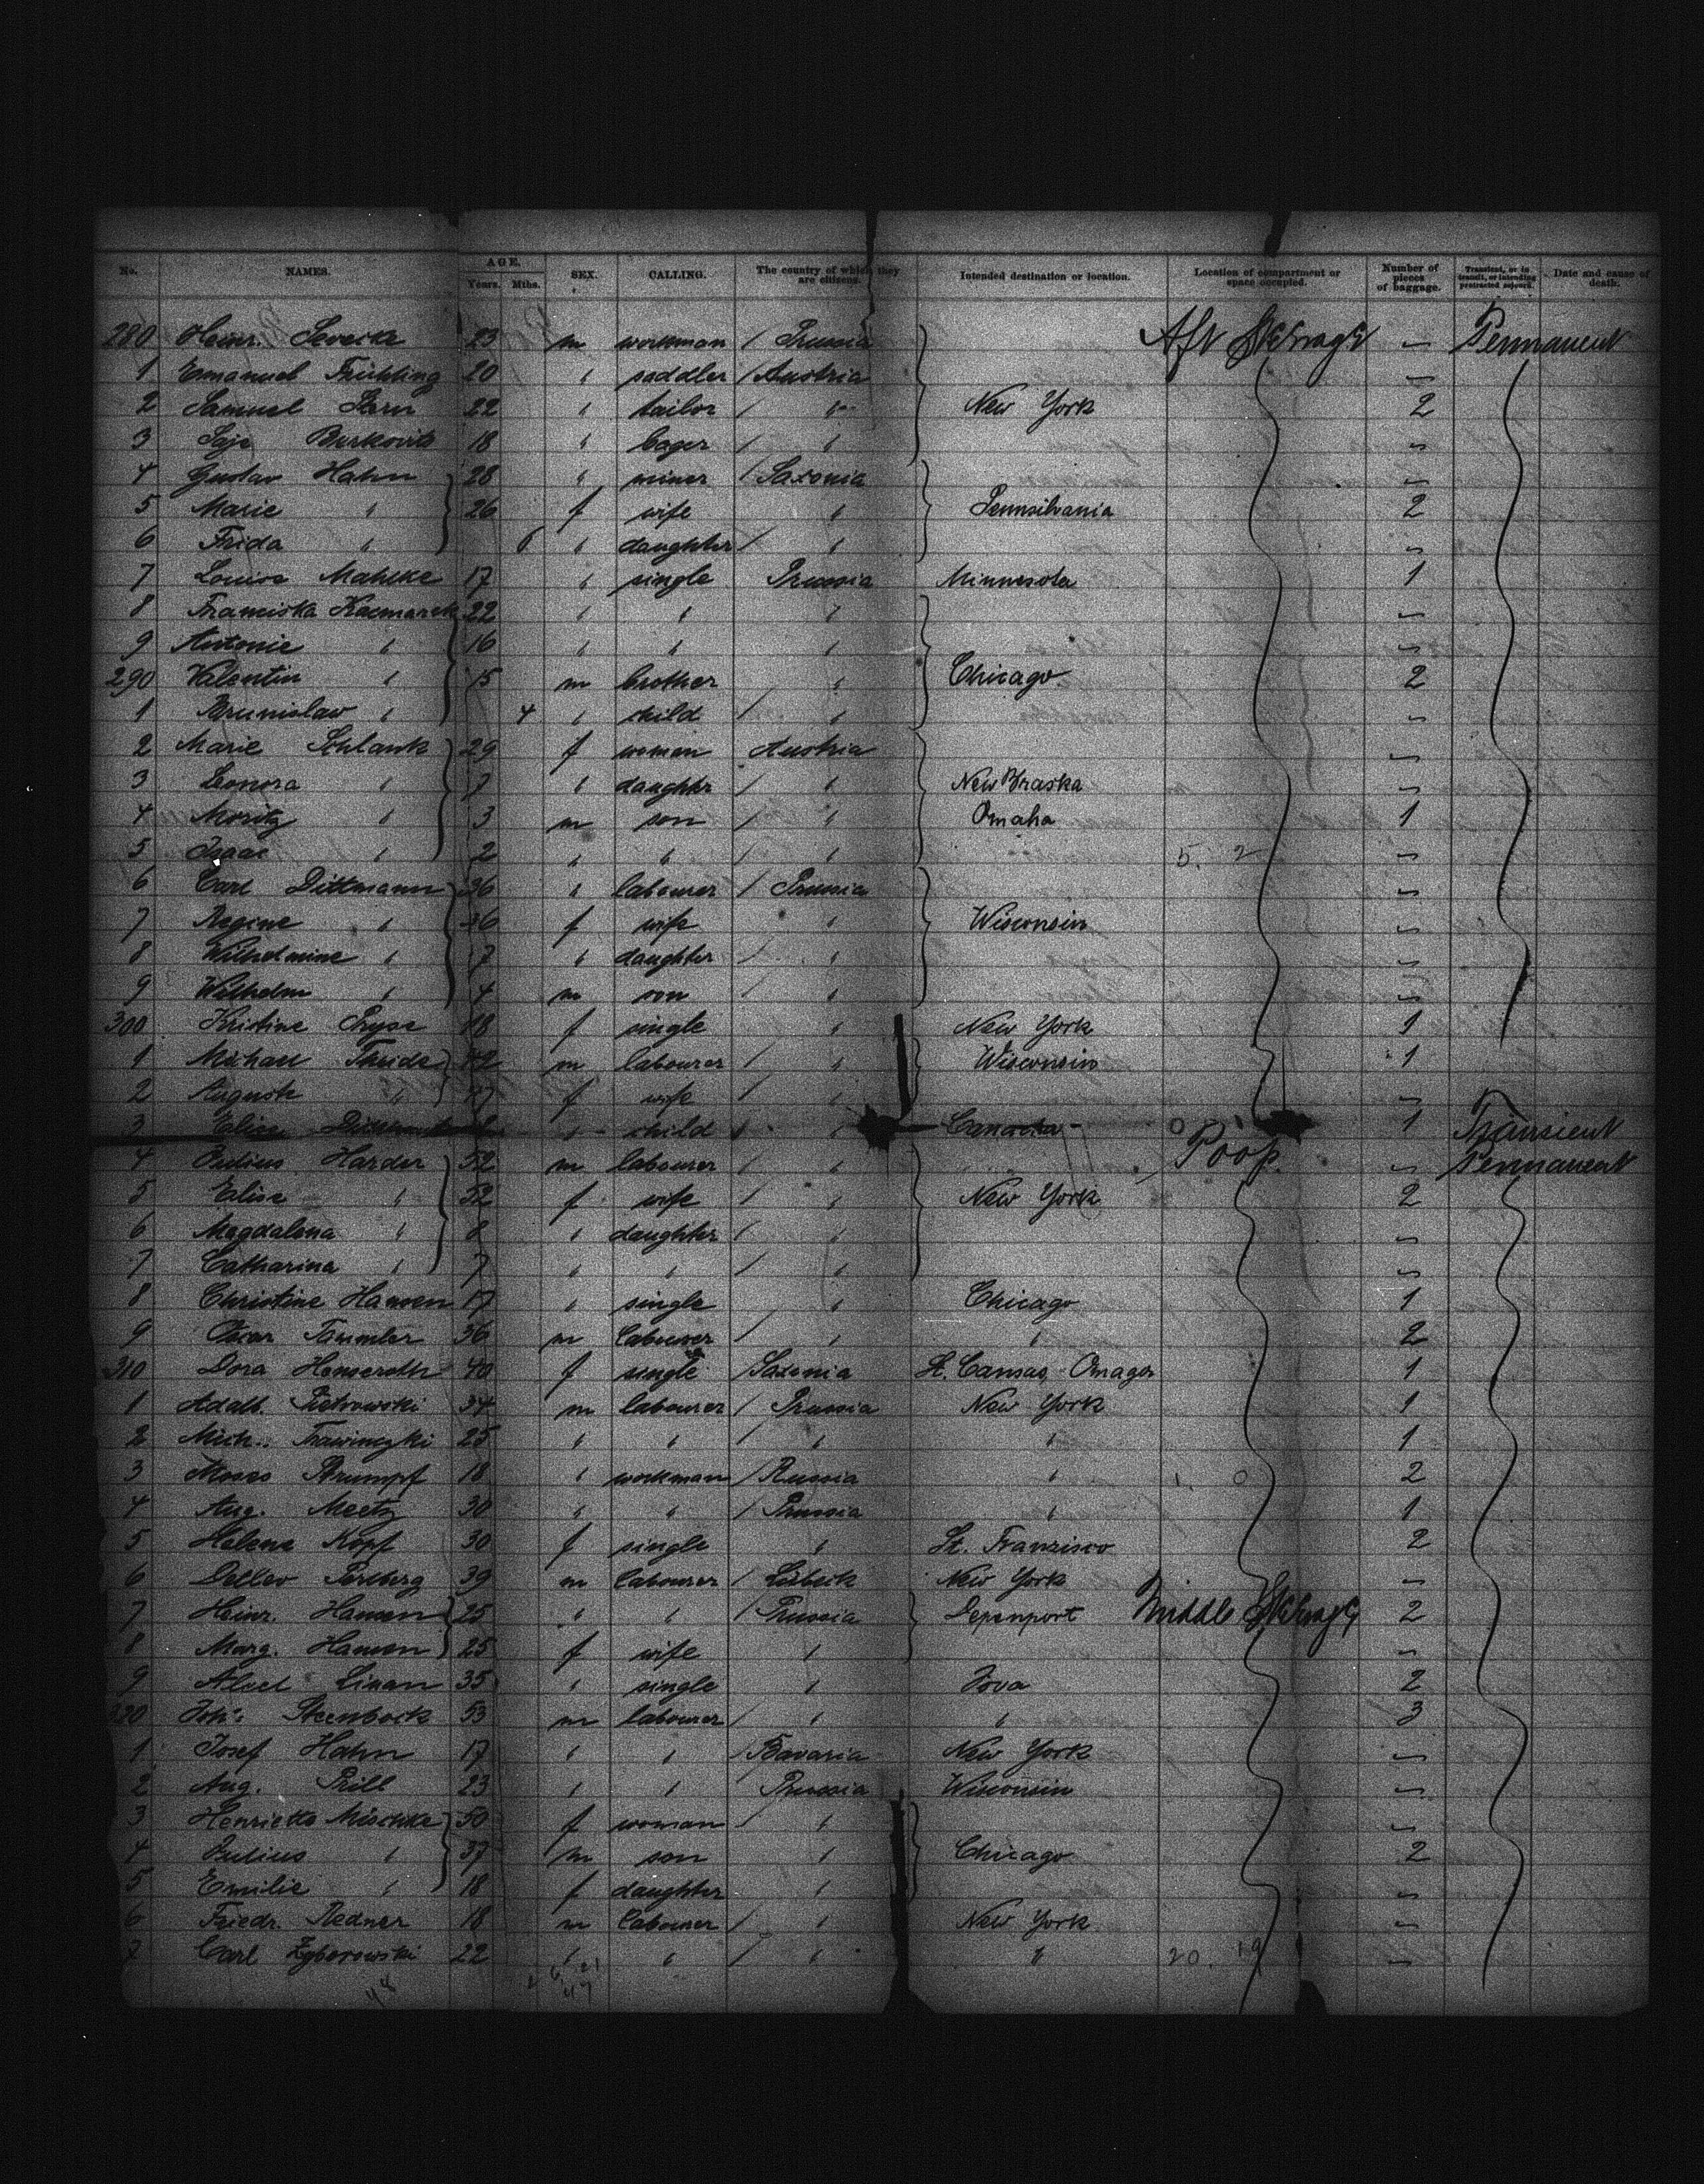 No. NAMES. AGE. Years. Mths. SEX. CALLING. The country of which they are citizens. Intended destination or location. Location of compartment or space occupied. Number of pieces of baggage. Transient, or in transit, or intending protracted sojourn. Date and cause of death.
280 Heinr. 23 m workman / Prussia Aft Steerage - Permanent
1 Emanuel 20 " saddler / Austria -
2 Samuel 22 " tailor / " New York 2
3 Berkovits 18 " / " -
4 Gustav Hahn 28 " miner / Saxonia -
5 Marie " 26 f wife " Pennsilvania 2
6 Frida " 6 " daughter / " -
7 Louise Mahlke 17 " single Prussia Minnesota 1
8 Franciska Kacmarek 22 " " " -
9 Antonie " 16 " " " -
290 Valentin " 15 m brother " Chicago 2
1 Brunislaw " 4 " child / " -
2 Marie Schlank 29 f woman Austria -
3 Leonora " 7 " daughter / " NewBraska -
4 Moritz " 3 m son / " Omaha 1
5 Isaac " 2 " " / " 5. 2 -
6 Carl Dittmann 36 " labourer / Prussia -
7 Regine " 36 f wife " Wisconsin -
8 Wilhelmine " 7 " daughter / " -
9 Wilhelm " 4 m son / " -
300 Kristine 18 f single " New York 1
1 Michael 42 m labourer / " Wisconsin 1
2 August " f wife / " -
3 Elise child Canada 0 1 Transient
4 Julius Harder 52 m labourer / " Poop. - Permanent
5 Elise " 52 f wife / " New York 2
6 Magdalena " 8 " daughter / " -
7 Catharina " 7 " " / " -
8 Christine Hansen 17 " single " Chicago 1
9 Oscar Tammler 36 m labourer / " " 2
310 Dora 40 f single / Saxonia St. Cansas, 1
1 Adalb. Pietrowski 34 m labourer / Prussia New York 1
2 Mich. 25 " " / " " 1
3 Moses Strumpf 18 " workman / Russia " 1. 0 2
4 Aug. Meetz 30 " " / Prussia " 1
5 Helene Kopf 30 f single " St. Franzisco 2
6 Detlev 39 m labourer / Lübeck New York -
7 Heinr. Hansen 25 " " / Prussia Depenport Middle Steerage 2
8 Marg. Hansen 25 f wife " -
9 35 " single " Iova 2
320 Joh. Steenbock 53 m labourer / " " 3
1 Josef Hahn 17 " " / Bavaria New York -
2 Aug. Prill 23 " " Prussia Wisconsin -
3 Henriette Mischke 50 f woman / " -
4 Julius " 37 m son " Chicago 2
5 Emilie " 18 f daughter " -
6 Friedr. Redner 18 m labourer / " New York -
7 Carl Zyborowski 22 " " / " " 20. 19 -
48 47